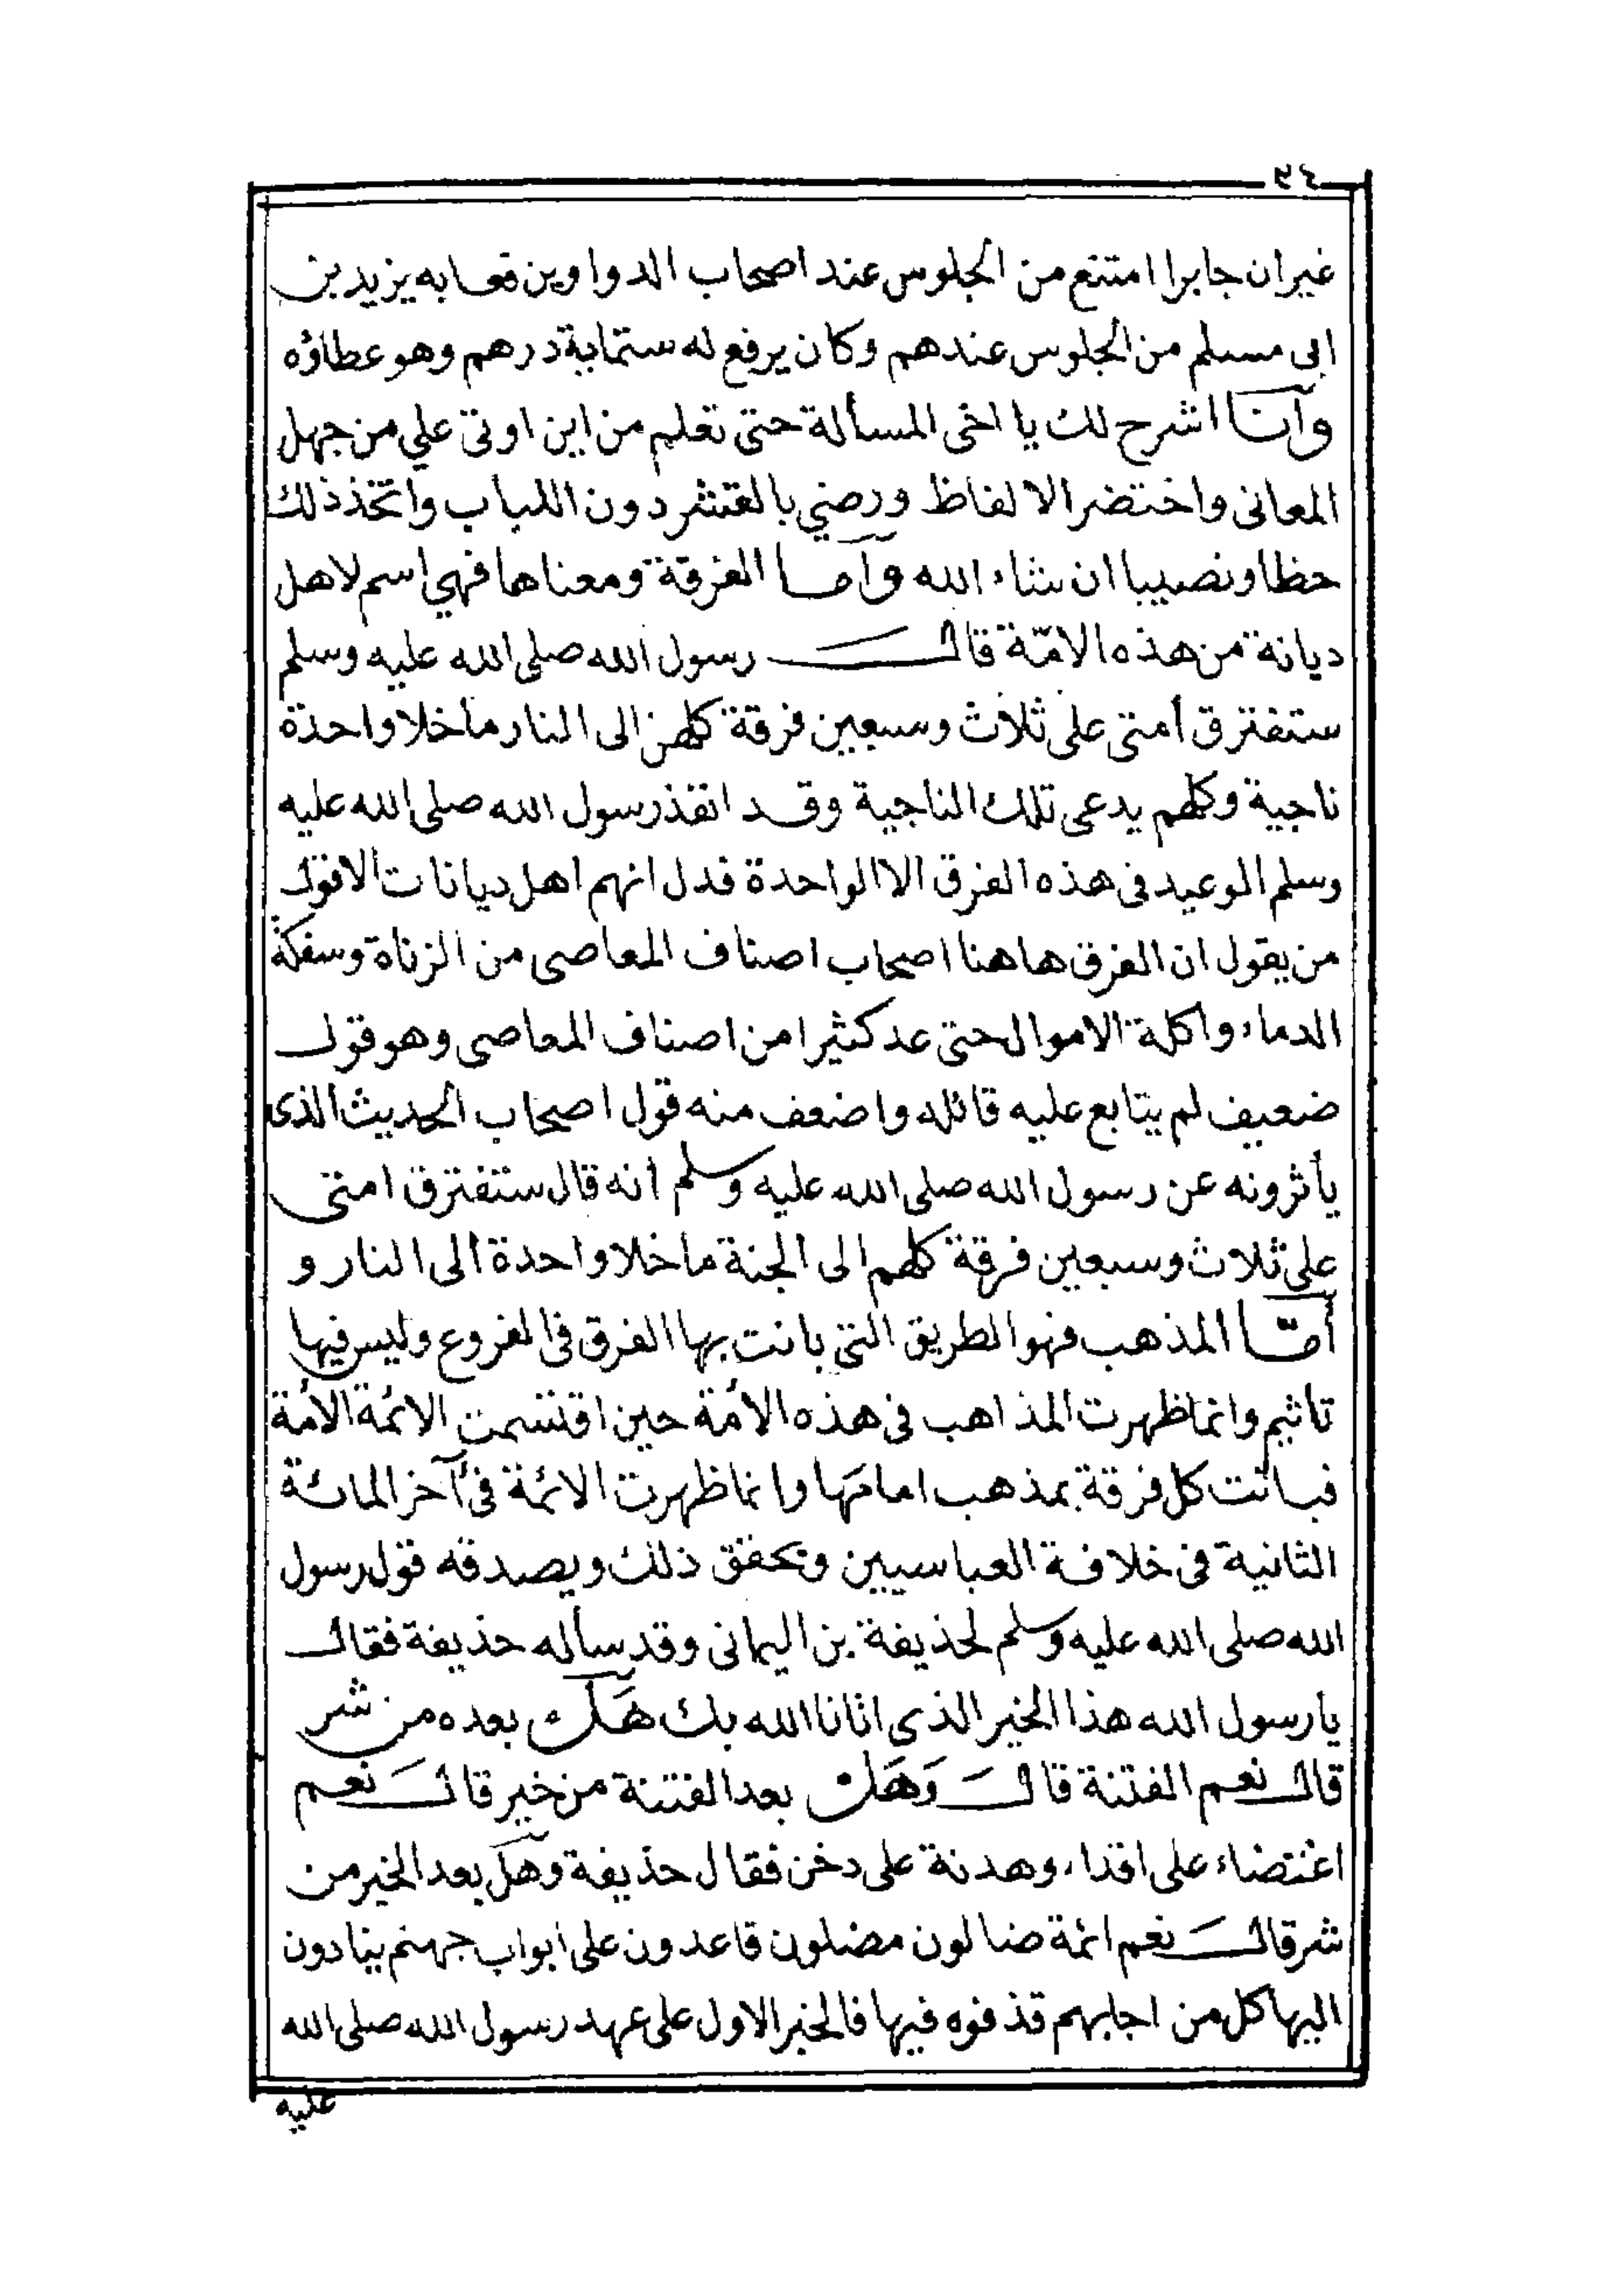 ٢٤
غير ان جابرا امتنع من الجلوس عند اصحاب الدواوين فعابه يزيد بن
ابى مسلم من الجلوس عندهم وكان يرفع له ستماية درهم وهو عطاؤه
وآنا اشرح لك يا اخى المسألة حتى تعلم من اين اوتى علي من جهل
المعانى واختضر الالفاظ ورضي بالقشر دون اللباب واتخذ ذلك
حظا ونصيبا ان شاء الله وآما الفرقة ومعناها فهي اسم لاهل
ديانة من هذه الامّة قال رسول الله صلى الله عليه وسلم
ستفترق أمتى على ثلاث وسبعين فرقة كلهن الى النار ما خلا واحدة
ناجية وكلهم يدعى تلك الناجية وقد انفذ رسول الله صلى الله عليه
وسلم الوعيد فى هذه الفرق الا الواحدة فدل انهم اهل ديانات الاقول
من يقول ان الفرق هاهنا اصحاب اصناف المعاصى من الزناة وسفكة
الدماء واكلة الاموال حتى عد كثيرا من اصناف المعاصى وهو قول
ضعيف لم يتابع عليه قائله واضعف منه قول اصحاب الحديث الذى
يأثرونه عن رسول الله صلى الله عليه وسلم أنه قال ستفترق امتى
على ثلاث وسبعين فرقة كلهم الى الجنة ما خلا واحدة الى النار و
أمّا المذهب فهو الطريق التى بانت بها الفرق فى الفروع وليس فيها
تاثيم وانما ظهرت المذاهب فى هذه الأمة حين اقتسمت الائمة الأمة
فبانت كل فرقة بمذهب امامها وانما ظهرت الائمة فى آخر المائة
الثانية فى خلافة العباسيين وتحقق ذلك ويصدقه قول رسول
الله صلى الله عليه وسلم لحذيفة بن اليمانى وقد سأله حذيفة فقال
يا رسول الله هذا الخير الذى اتانا الله بك هَل بعده من شر
قال نعم الفتنة قال وَهَل بعد الفتنة من خير قال نعم
اغتضاء على اقذاء وهدنة على دخن فقال حذيفة وهل بعد الخير من
شر قال نعم ائمة ضالون مضلون قاعدون على ابواب جهنم ينادون
اليها كل من اجابهم قذفوه فيها فالخير الاول على عهد رسول الله صلى الله
عليه